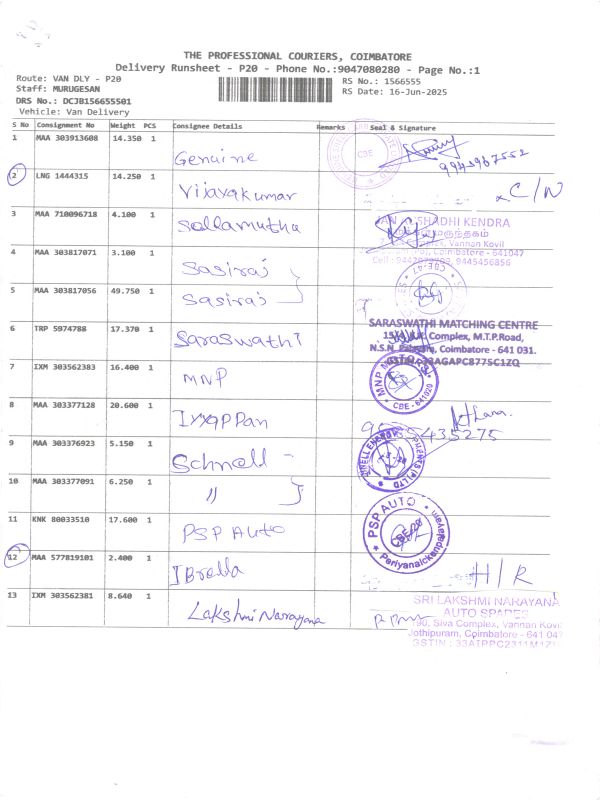 THE PROFESSIONAL COURIERS, COIMBATORE
Delivery Runsheet - P20 - Phone No.:9047080280 - Page No.:1
Route: VAN DLY - P20
RS No.: 1566555
Staff: MURUGESAN
RS Date: 16-Jun-2025
DRS No.: DCJB156655501
Vehicle: Van Delivery
S No Consignment No Weight PCS Consignee Details Remarks Seal & Signature
1 MAA 303913608 14.350 1 Genuine
CBE
2 LNG 1444315 14.250 1 Vijayakumar C/N
3 MAA 710096718 4.100 1 Sellamuthu
SHADHI KENDRA
Complex, Vannan Kovil
Coimbatore - 641047
9445456856
4 MAA 303817071 3.100 1 Sasiraj
CBE-47
5 MAA 303817056 49.750 1 Sasiraj
6 TRP 5974788 17.370 1 Saraswathi
SARASWATHI MATCHING CENTRE
Complex, M.T.P.Road,
N.S.N. Coimbatore - 641 031.
7 IXM 303562383 16.400 1 MNP
MNP
CBE - 641020
8 MAA 303377128 20.600 1 Iyyappan
435275
9 MAA 303376923 5.150 1 Schnell
10 MAA 303377091 6.250 1 "
11 KNK 80033510 17.600 1 PSP Auto
PSP AUTO
CBE-20
Periyanaickenpalayam
12 MAA 577819101 2.400 1 H/R
13 IXM 303562381 8.640 1 Lakshmi Narayana
SRI LAKSHMI NARAYANA
AUTO SPARES
190, Siva Complex, Vannan Kovil
Jothipuram, Coimbatore - 641 047